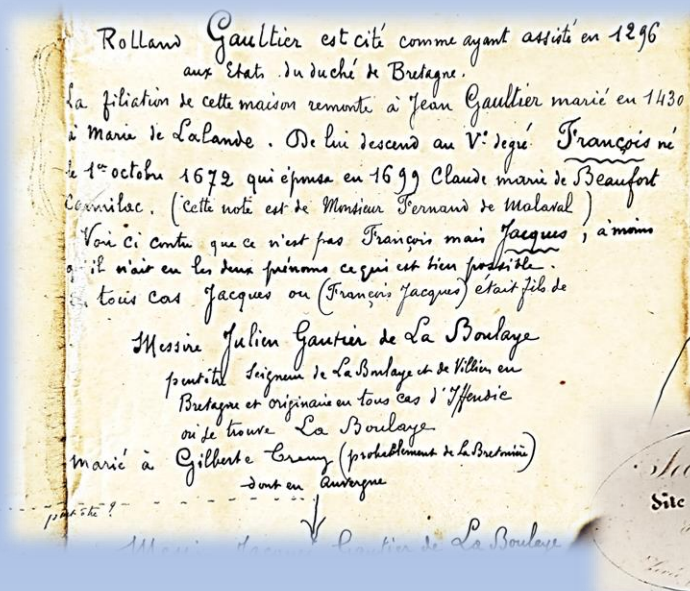 Rolland Gaultier est cité comme ayant assisté en 1296
aux Etats du duché de Bretagne.
La filiation de cette maison remonte à Jean Gaultier marié en 1430
à Marie de Lalande. De lui descend au Ve degré François né
le 1er octobre 1672 qui épousa en 1699 Claude marie de Beaufort
Canilac. (cette note est de Monsieur Fernand de Malaval)
Voir ci contre que ce n'est pas François mais Jacques, à moins
qu'il n'ait eu les deux prénoms ce qui est bien possible.
En tous cas Jacques ou (François Jacques) était fils de
Messire Julien Gautier de La Boulaye
peut être Seigneur de La Boulaye et de Villien en
Bretagne et originaire en tous cas d'Iffendic
où se trouve La Boulaye
marié à Gilberte (probablement de la Bretonnière)
dont en Auvergne
peut être ?
Messire Jacques Gautier de La Boulaye
Site